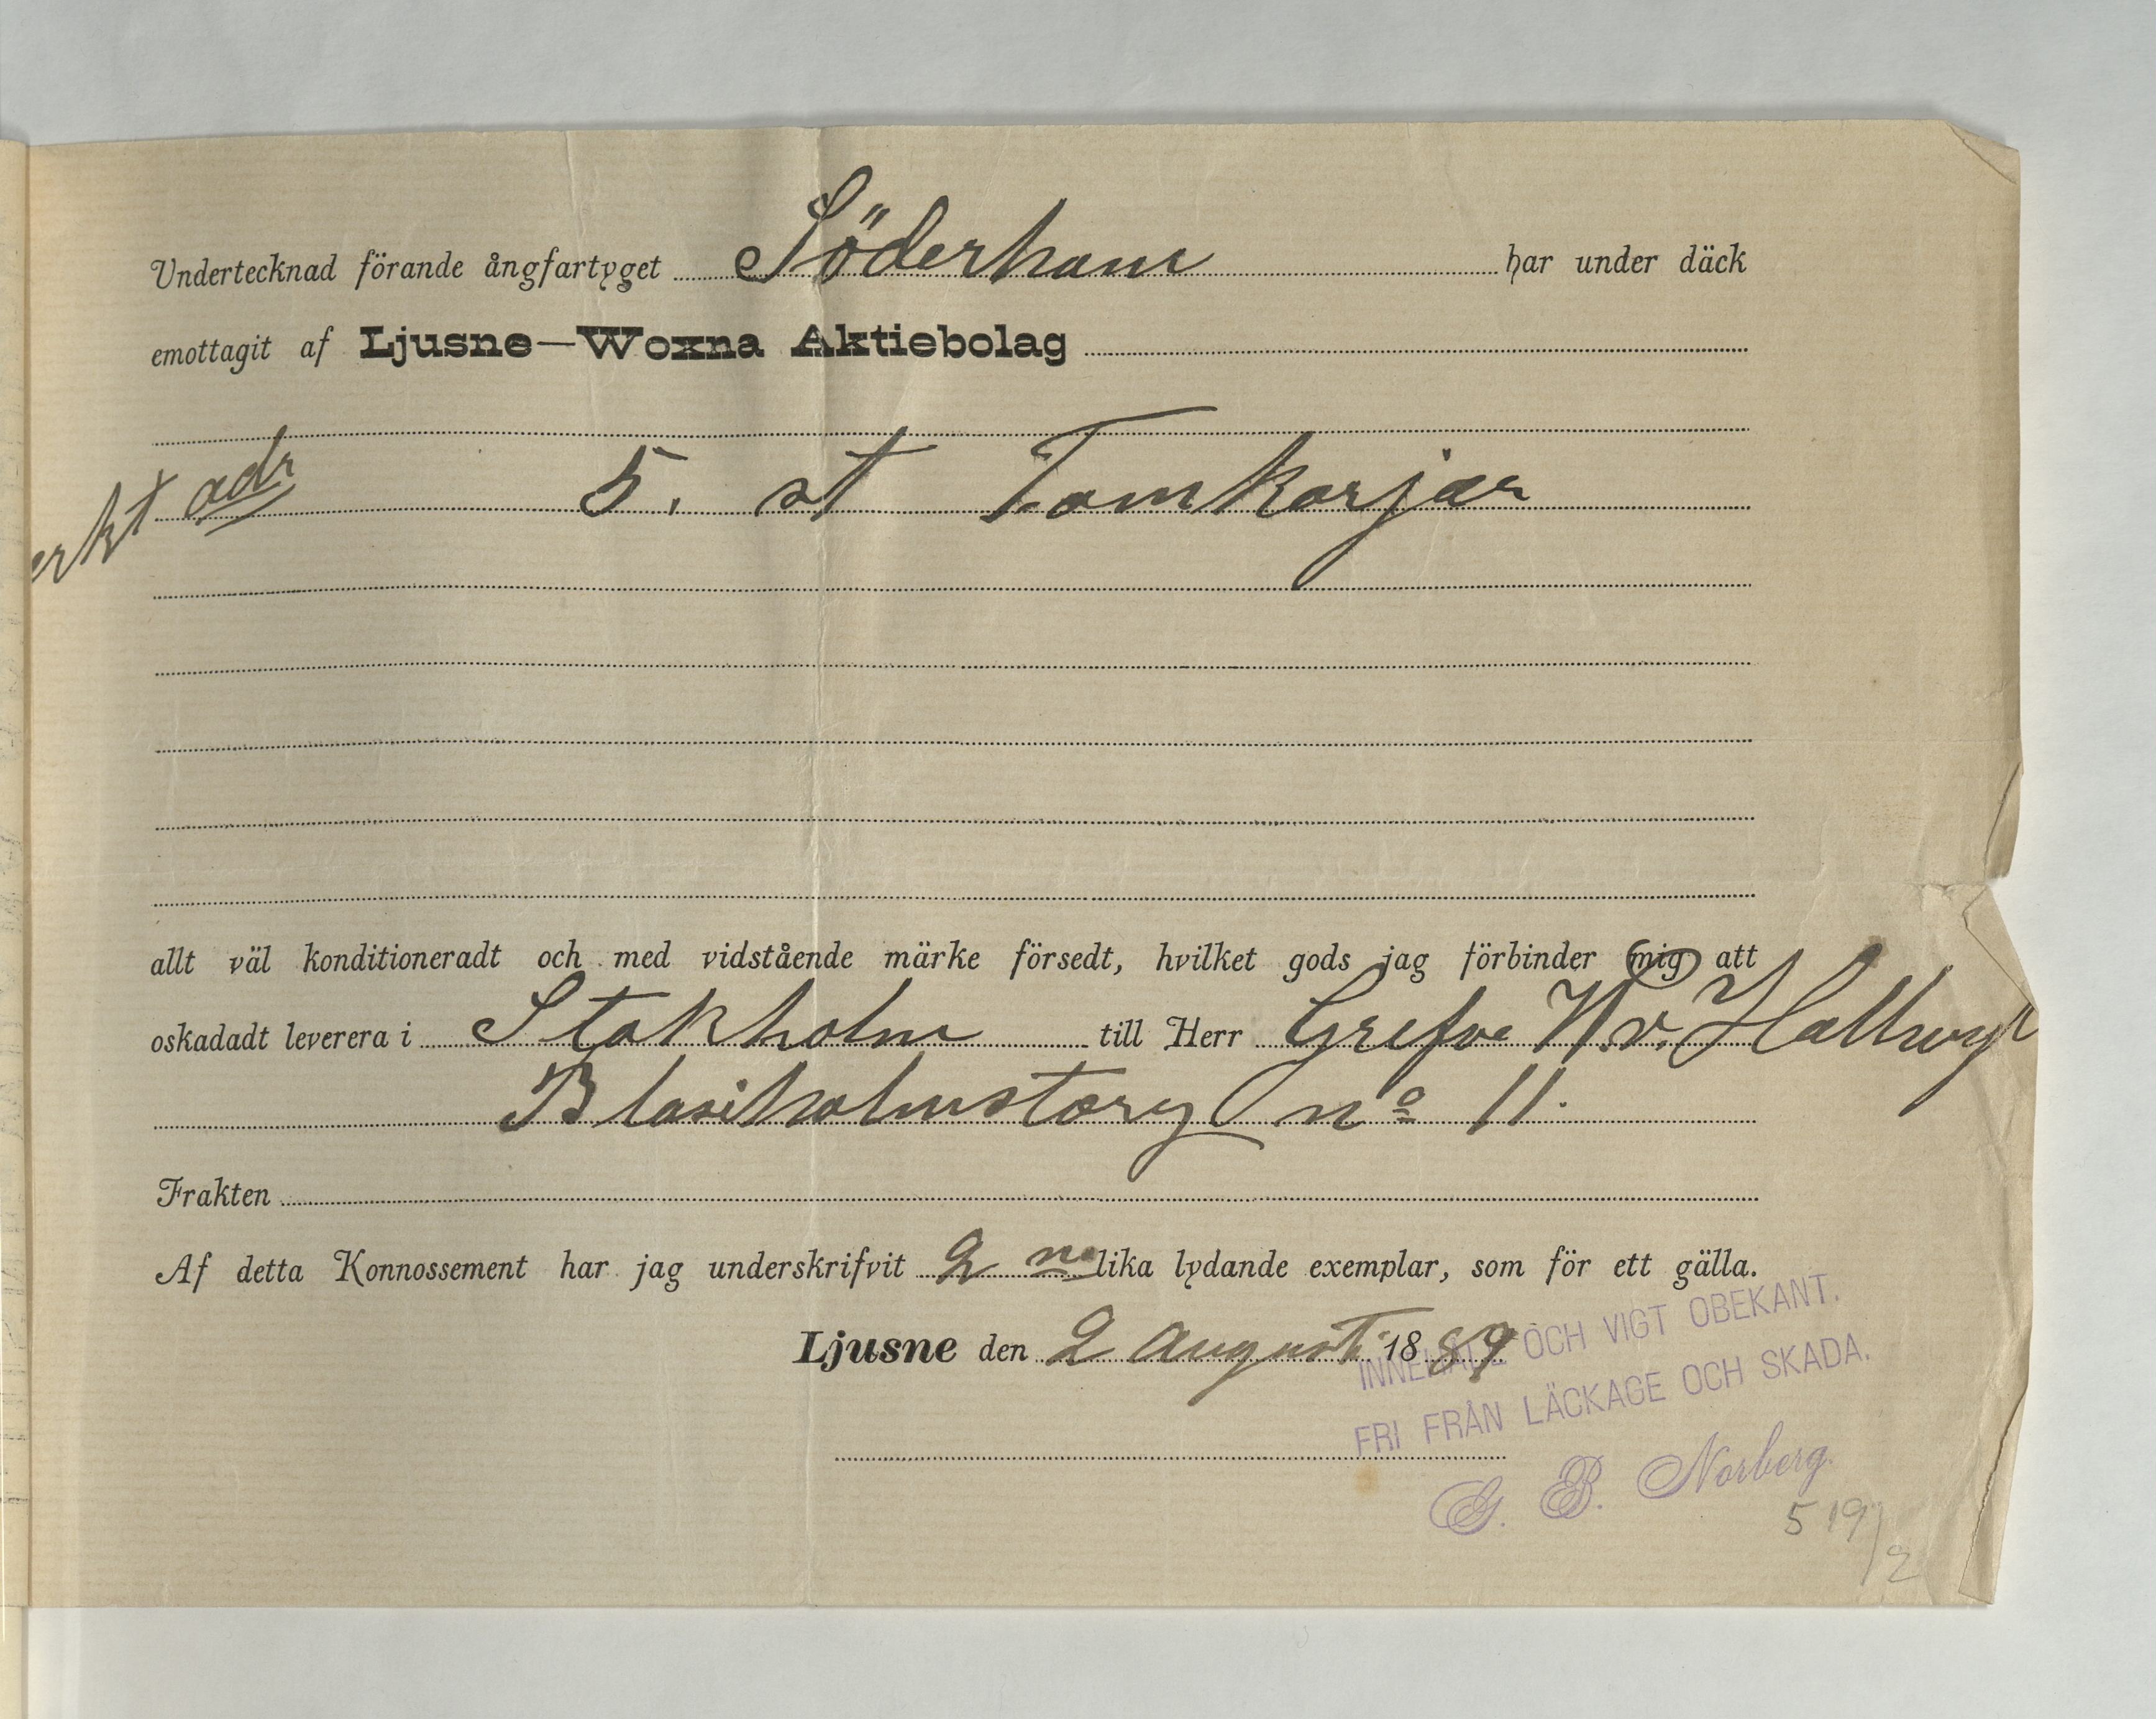 Undertecknad förande ångfartyget Söderhamn har under däck
emottagit af Ljusne—Woxna Aktiebolag
erkt adr 5. st Tomkorjar
allt väl konditioneradt och med vidstående märke försedt, hvilket gods jag förbinder mig att
oskadadt leverera i Stokholm till Herr Grefve W. v. Hallwyl
Blasiholmstorg no 11.
Frakten
Af detta Konnossement har jag underskrifvit 2 ne lika lydande exemplar, som för ett gälla.
Ljusne den 2 Augusti 1889
INNEHÅLL OCH VIGT OBEKANT.
FRI FRÅN LÄCKAGE OCH SKADA.
G. B. Norberg.
519/2